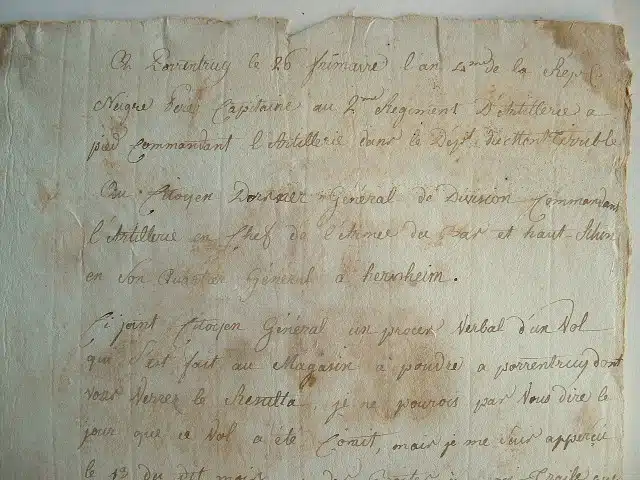 A Porrentruy le 26 frimaire l'an 4me de la Rép.
Neigre Pere Capitaine au 2me Regiment D'Artillerie a
pied Commandant l'Artillerie dans le Dept. du Mont Terrible
Au Citoyen Dorsner Général de Division Commandant
l'Artillerie en Chef de l'Armée du Bas et haut-Rhin
en son Quartier Général à herrnheim.
Ci joint Citoyen Général un procer Verbal d'un Vol
qui s'est fait au Magasin à poudre a porrentruy dont
vous Verrez le Resulta, je ne pourois par Vous dire le
jour que ce Vol a été Comit, mais je me suis apperçu
le 13 du dit mois